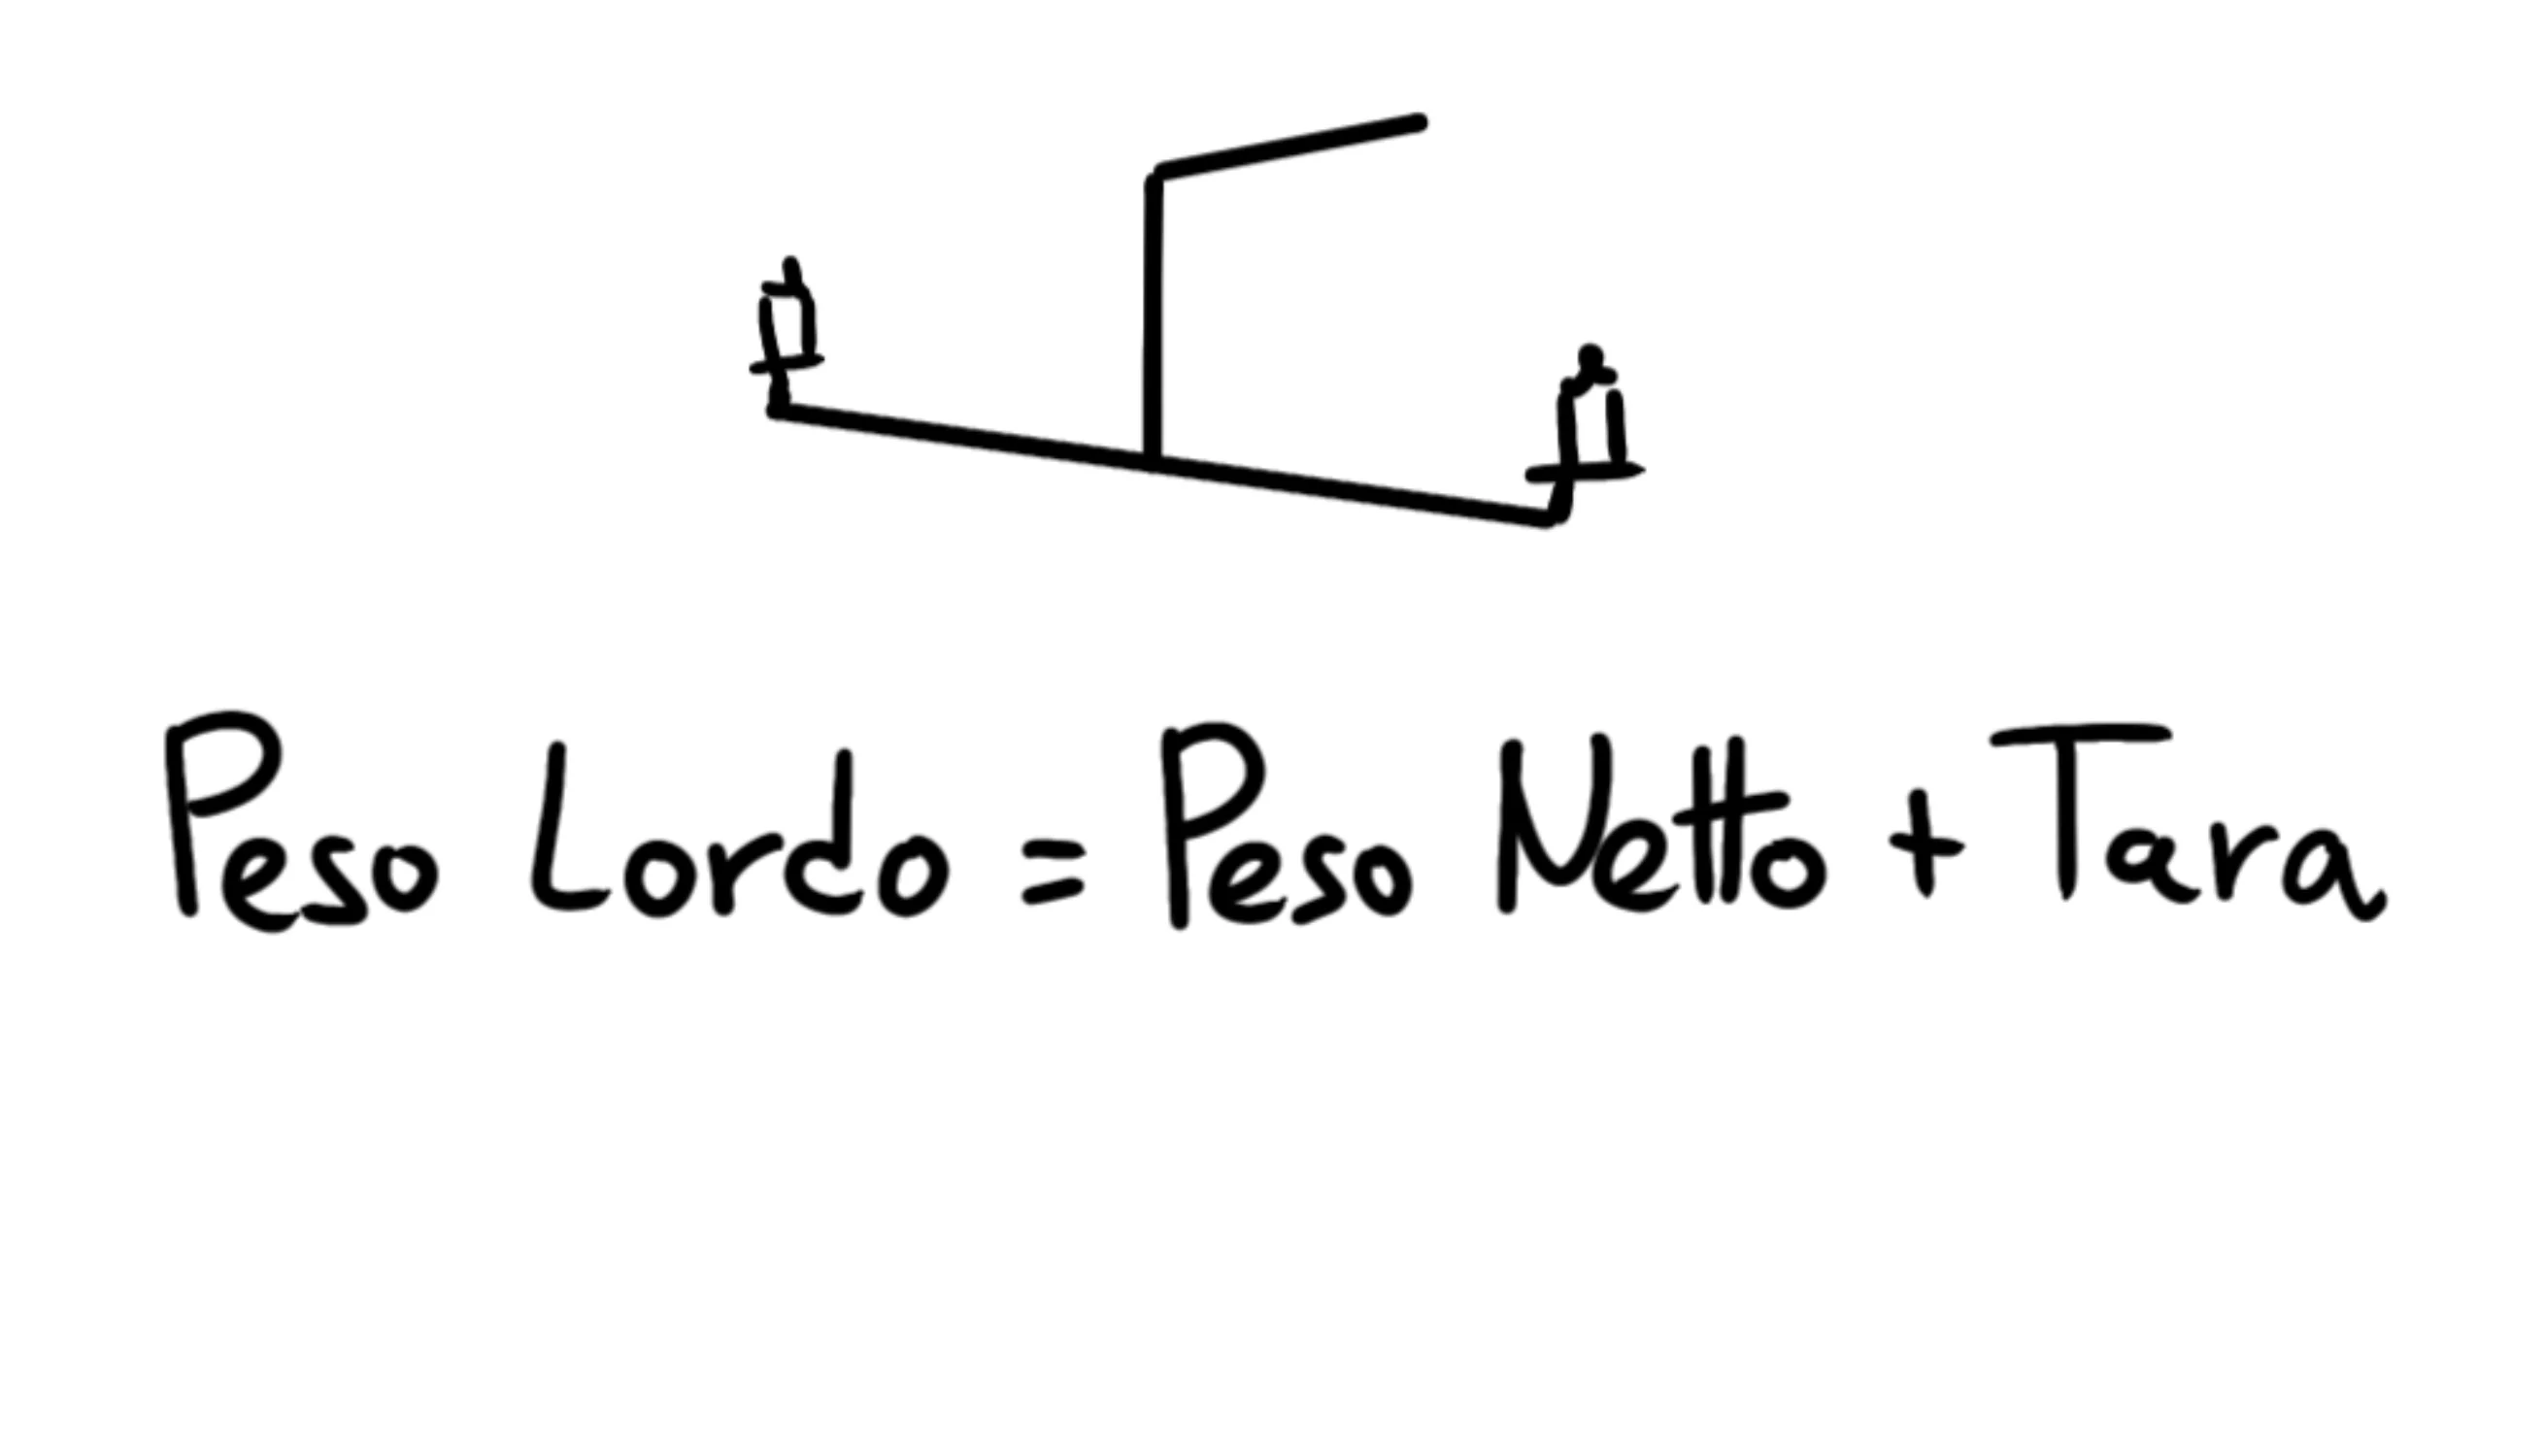 Peso Lordo = Peso Netto + Tara